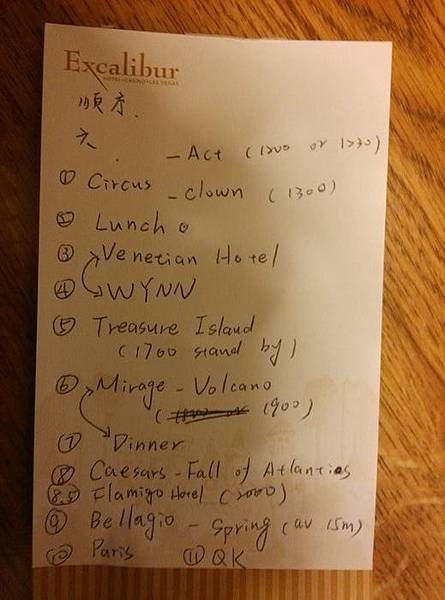 Excalibur
HOTEL • CASINO • LAS VEGAS
順序.
六.
- Act (1200 or 1230)
① Circus - clown (1300)
② Lunch
③ Venetian Hotel
④ WYNN
⑤ Treasure Island
(1700 stand by)
⑥ Mirage - Volcano
(1900)
⑦ Dinner
⑧ Caesars - Fall of Atlantics
8.5 Flamigo Hotel (2000)
⑨ Bellagio - Spring (av 15m)
⑩ Paris ⑪ QK